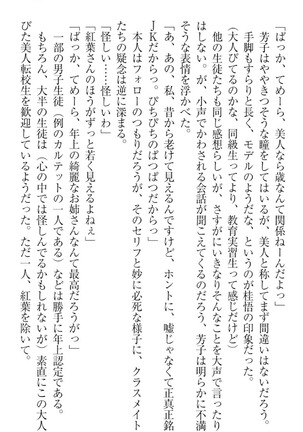 「ばっか、てめーら、美人なら歳なんて関係ねーんだよっ」
　芳子はややきつそうな瞳をしてはいるが、美人と称してまず間違いはないだろう。
手脚もすらりと長く、モデルのようだな、というのが桂悟の印象だった。
（大人びてるのかな、同級生ってより、教育実習生って感じだけど）
　他の生徒たちも同じ感想らしいが、さすがにいきなりそんなことを大声で言ったり
はしない。が、小声でかわされる会話が聞こえてくるのだろう、芳子は明らかに不満
そうな表情を浮かべた。
「あ、あの、私、昔から老けて見えるんですけど、ホントに、嘘じゃなくて正真正銘
JKだからっ。ぴちぴちのぱつぱつだからっ」
　本人はフォローのつもりだろうが、そのセリフと妙に必死な様子に、クラスメイト
たちの疑念は逆に深まる。
「怪しい……怪しいわ」
「紅葉さんのほうがずっと若く見えるよねぇ」
「ばっか、てめーら、年上の綺麗なお姉さんなんて最高だろがっ」
　一部の男子生徒（例のカルテットの一人である）などは勝手に年上認定である。
　もちろん、大半の生徒は（心の中では怪しんでるかもしれないが）素直にこの大人
びた美人転校生を歓迎しているようだった。ただ一人、紅葉を除いて。